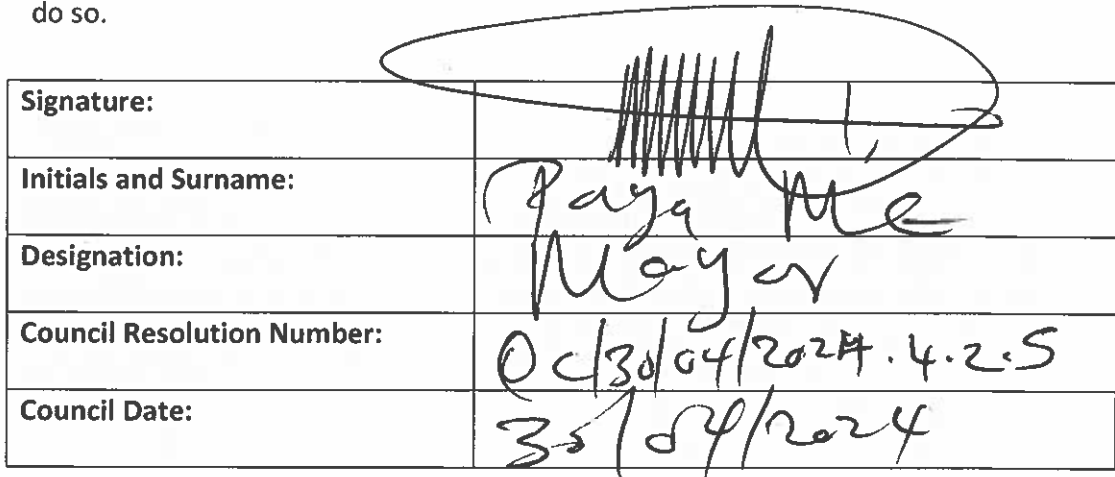 do so.
Signature:
Initials and Surname: Paya ME
Designation: Mayor
Council Resolution Number: OC/30/04/2024.4.2.5
Council Date: 30/04/2024